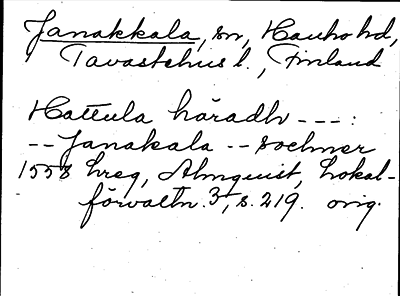 Janakkala, sn, Hauho hd,
Tavastehus l., Finland
Hattula häradh ---:
-- Janakala -- sochner
1558 hreg, Almquist, Lokal-
förvaltn. 3, s. 219. orig.